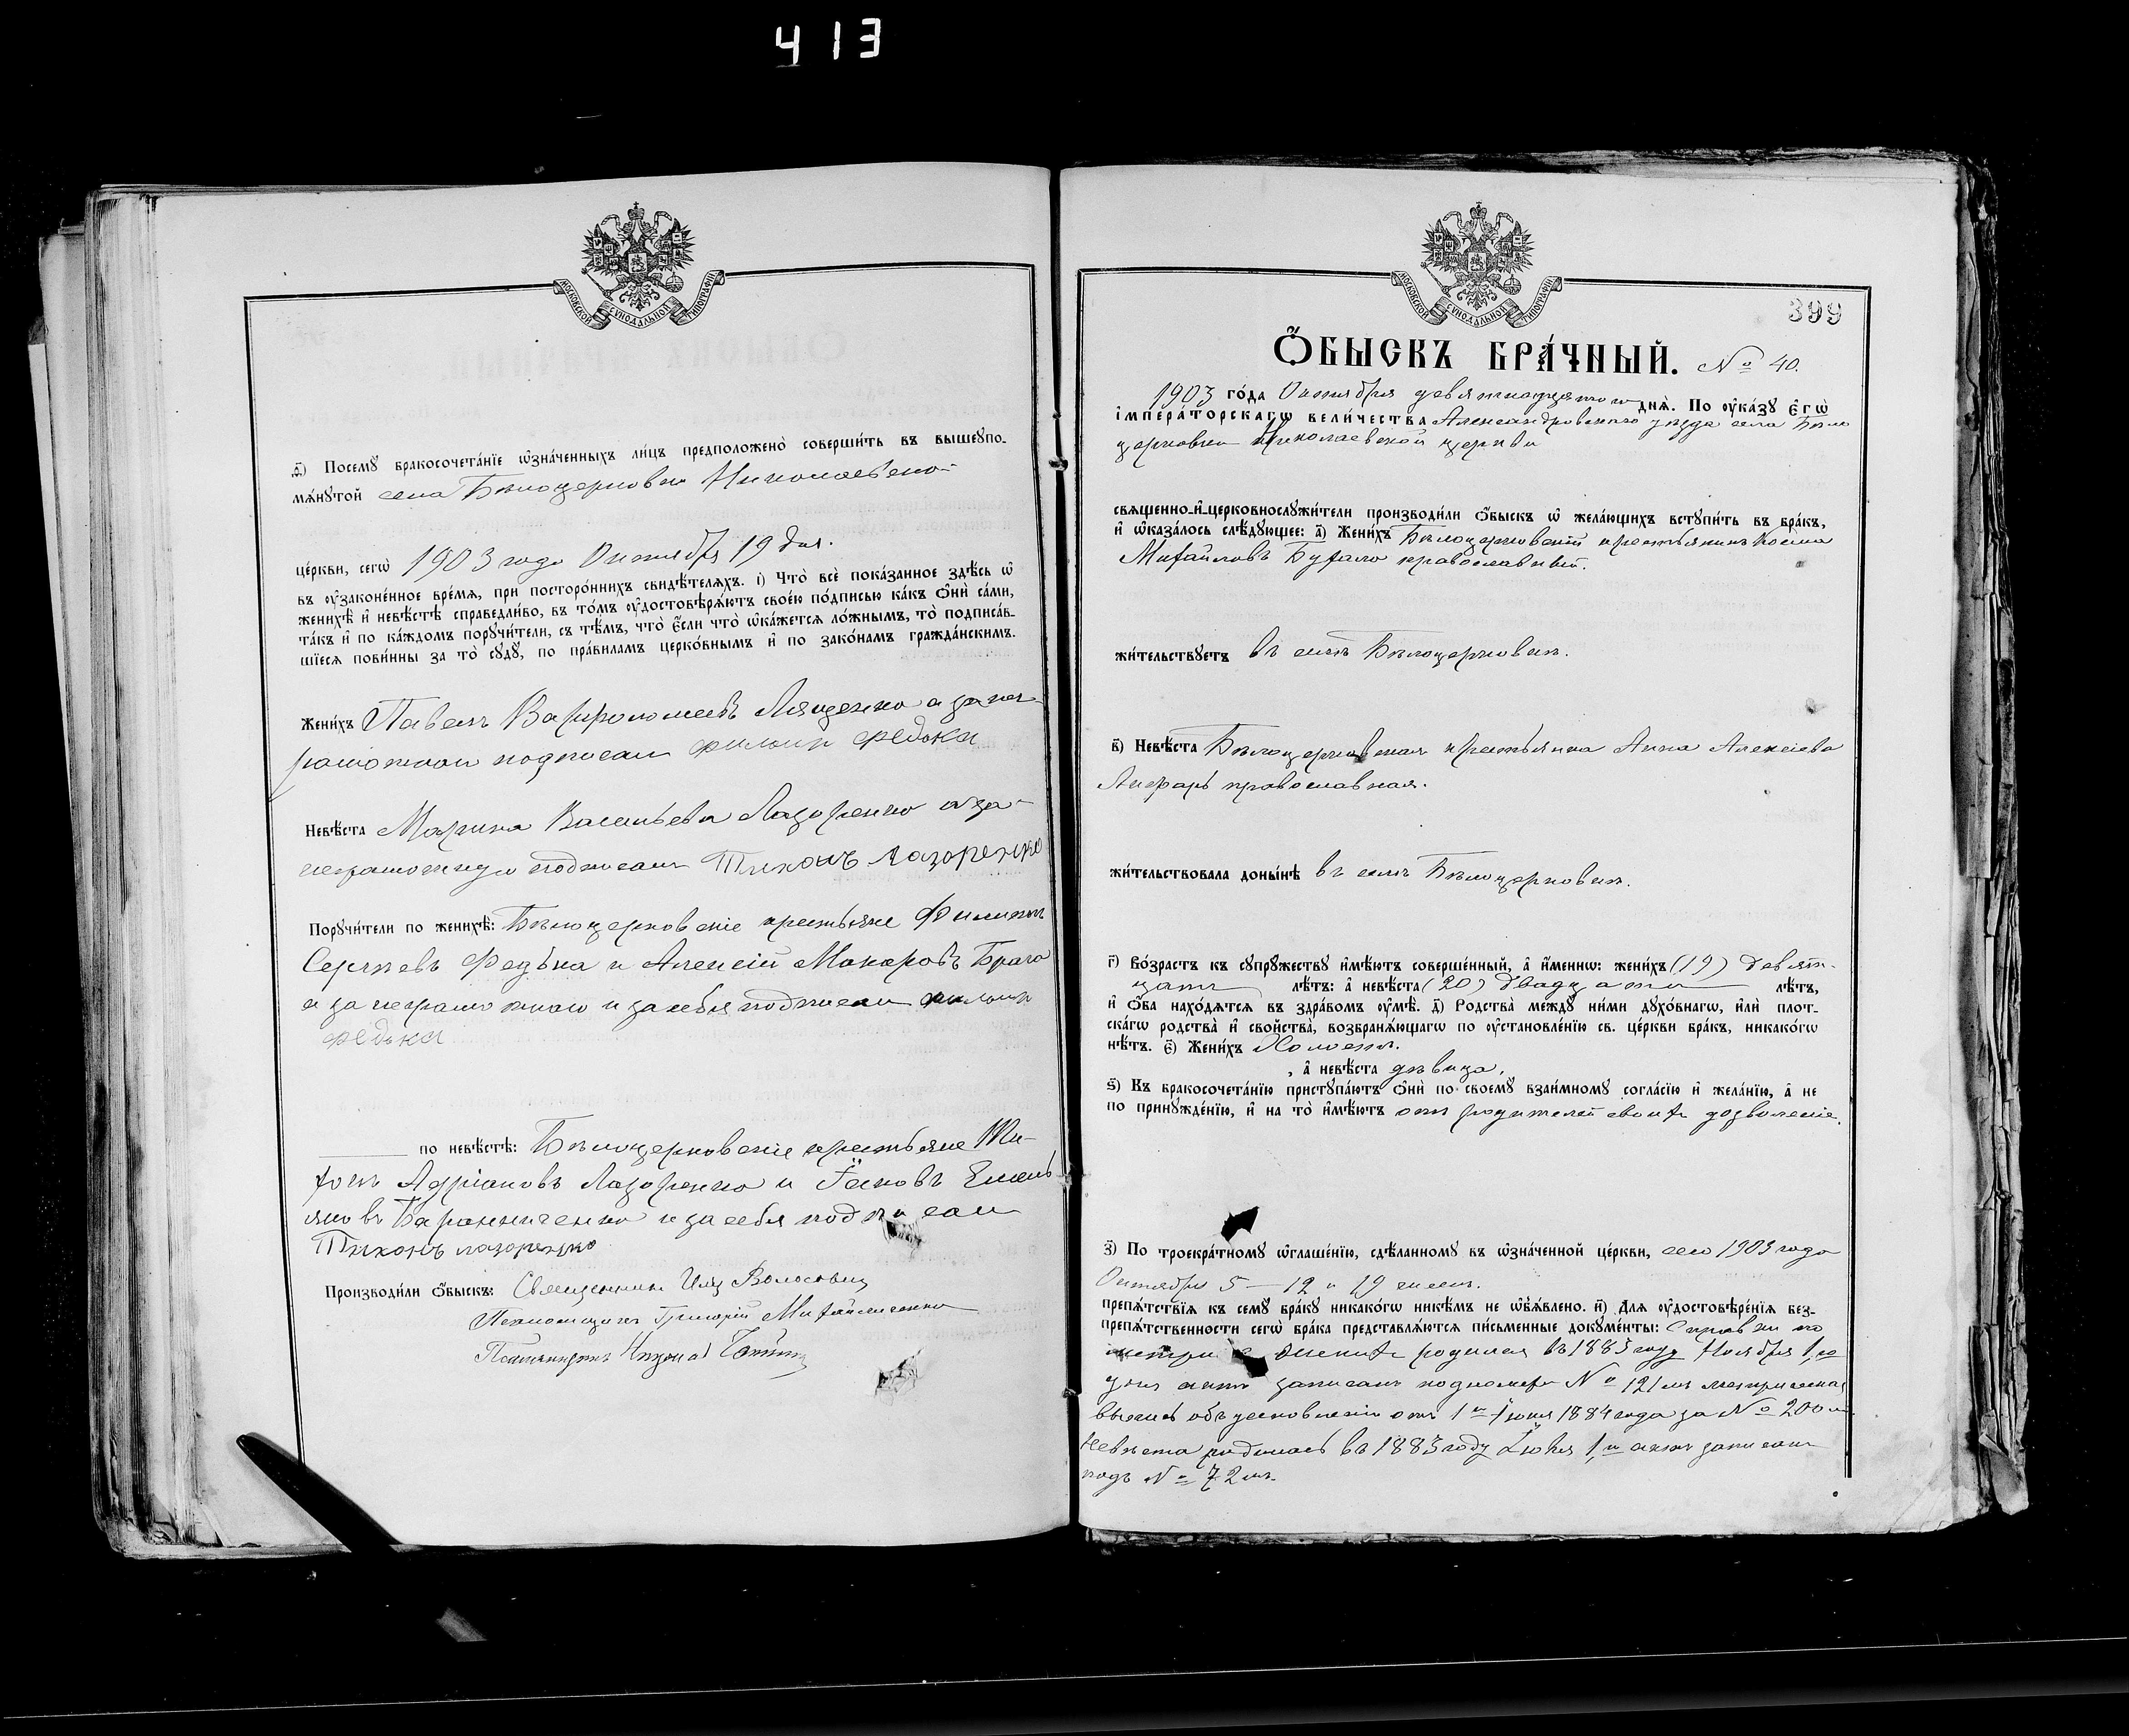 413
МОСКОВСКОЙ СѴНОДАЛЬНОЙ ТИПОГРАФІИ
Ѳ҃) Посемꙋ бракосочета́нїе ѡ҆зна́ченныхъ ли́цъ предположено̀ соверши́ть въ вышеꙋпо-
мѧ́нꙋтой села Бѣлоцерковки Николаевско-
це́ркви, сегѡ̀ 1903 года Октября 19 дня.
въ ᲂу҆зако́ненное вре́мѧ, при посторо́ннихъ свидѣ́телѧхъ. і҃) Что̀ всѐ пока́занное здѣ́сь ѡ҆
женихѣ̀ и҆ невѣ́стѣ справедли́во, въ то́мъ ᲂу҆достовѣрѧ́ютъ свое́ю по́дписью ка́къ ѻ҆нѝ са́ми,
та́къ и҆ по ка́ждомъ порꙋчи́тели, съ тѣ́мъ, что̀ є҆́сли что̀ ѡ҆ка́жетсѧ ло́жнымъ, то̀ подписа́в-
шїесѧ пови́нны за то̀ сꙋдꙋ̀, по пра́виламъ церко́внымъ и҆ по зако́намъ гражда́нскимъ.
Жени́хъ Павелъ Варфоломеевъ Лященко а за нег-
рамотнаго подписалъ Филипъ Федька
Невѣ́ста Марина Васильева Лазоренко а за-
неграмотную подписалъ Тихонъ Лазоренко
Порꙋчи́тели по женихѣ̀: Бѣлоцерковскіе крестьяне Филипъ
Сергѣевъ Федька и Алексій Макаровъ Брага
а за неграмотнаго и за себя подписалъ Филипъ
Федька
по невѣ́стѣ: Бѣлоцерковскіе крестьяне Ти-
хонъ Адріановъ Лазоренко и Іаковъ Емель-
яновъ Баранниченко и за себя подписалъ
Тихонъ Лазоренко
Производи́ли ѻ҆́быскъ: Священникъ Илія Волосовиц
Псаломщикъ Григорій Михайличенко
МОСКОВСКОЙ СѴНОДАЛЬНОЙ ТИПОГРАФІИ
399
Ѻ҆́БЫСКЪ БРА́ЧНЫЙ. № 40.
1903 го́да Октября девятнадцатого днѧ̀. По ᲂу҆ка́зꙋ є҆гѡ̀
і҆мпера́торскагѡ вели́чества Александровскаго уѣзда села Бѣло
церковки Николаевской церкви
свѧще́нно-и҆-церковнослꙋжи́тели производи́ли ѻ҆́быскъ ѡ҆ жела́ющихъ вступи́ть въ бра́къ,
и҆ ѡ҆каза́лось слѣ́дꙋющее: а҃) Жени́хъ Бѣлоцерковскій крестьянинъ Косма
Михайловъ Буфало православный.
жи́тельствꙋетъ въ селѣ Бѣлоцерковкѣ.
в҃) Невѣ́ста Бѣлоцерковская крестьянка Анна Алексіева
православная.
жи́тельствовала доны́нѣ въ селѣ Бѣлоцерковкѣ.
г҃) Во́зрастъ къ сꙋпрꙋ́жествꙋ и҆мѣ́ютъ соверше́нный, а҆ и҆́меннѡ: жени́хъ (19) девят-
цать лѣ́тъ: а҆ невѣ́ста (20) двадцати лѣ́тъ,
и҆ ѻ҆́ба нахо́дѧтсѧ въ здра́вомъ ᲂу҆мѣ̀. д҃) Родства̀ междꙋ̀ ни́ми дꙋхо́внагѡ, и҆лѝ плот-
ска́гѡ родства̀ и҆ сво́йства̀, возбранѧ́ющагѡ по ᲂу҆становле́нїю св. це́ркви бра́къ, никако́гѡ
нѣ́тъ. є҃) Жени́хъ Холостъ.
, а҆ невѣ́ста дѣвица.
ѕ҃) Къ бракосочета́нїю пристꙋпа́ютъ ѻ҆нѝ по своемꙋ̀ взаи́мномꙋ согла́сїю и҆ жела́нїю, а҆ не
по принꙋжде́нїю, и҆ на то̀ и҆мѣ́ютъ отъ родителей своихъ дозволеніе.
з҃) По троекра́тномꙋ ѡ҆глаше́нїю, сдѣ́ланномꙋ въ ѡ҆зна́ченной це́ркви, сего 1903 года
Октября 5 — 12 и 19 чиселъ.
препѧ́тствїѧ къ семꙋ̀ бра́кꙋ никако́гѡ никѣ́мъ не ѡ҆б̾ѧ́влено. и҃) Длѧ ᲂу҆достовѣре́нїѧ без-
препѧ́тственности сегѡ̀ бра́ка представлѧ́ютсѧ пи́сьменные докꙋме́нты: Справки по
метрикѣ Женихъ родился въ 1883 году Ноября 1,го
дня актъ записанъ под номеромъ № 121мъ
отъ 1го Іюня 1884 года за № 200м
Невѣста родилась въ 1883 году Іюня 1,го актъ записанъ
подъ № 72мъ.